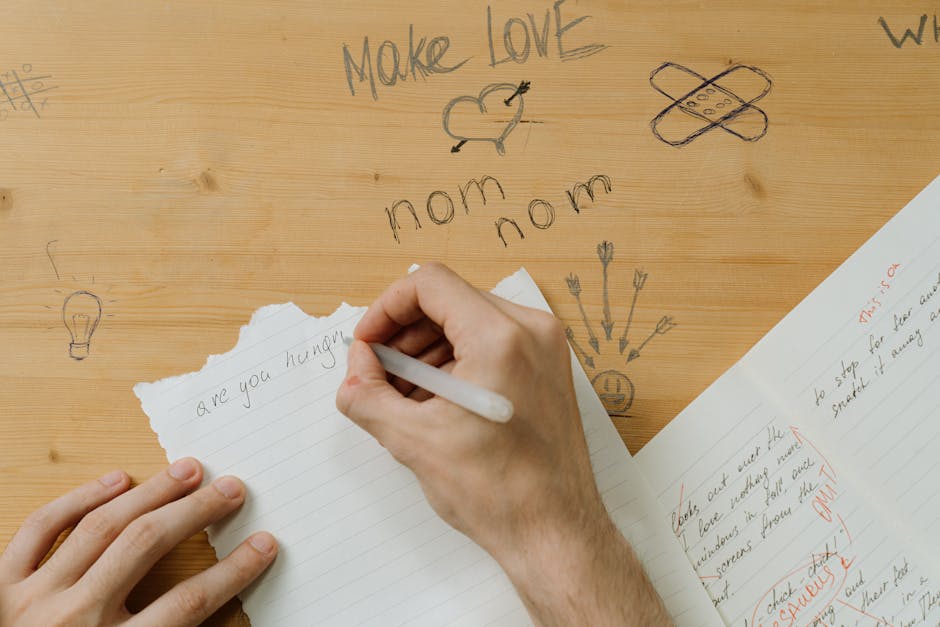 Make LOVE
Wh
nom
nom
are you hungry
This is on
to stop for fear
snatch it away
looks out over the
I love nothing more
windows in fall and
screens from the
out.
OMIT
chick-chick!
and
their feet
in a